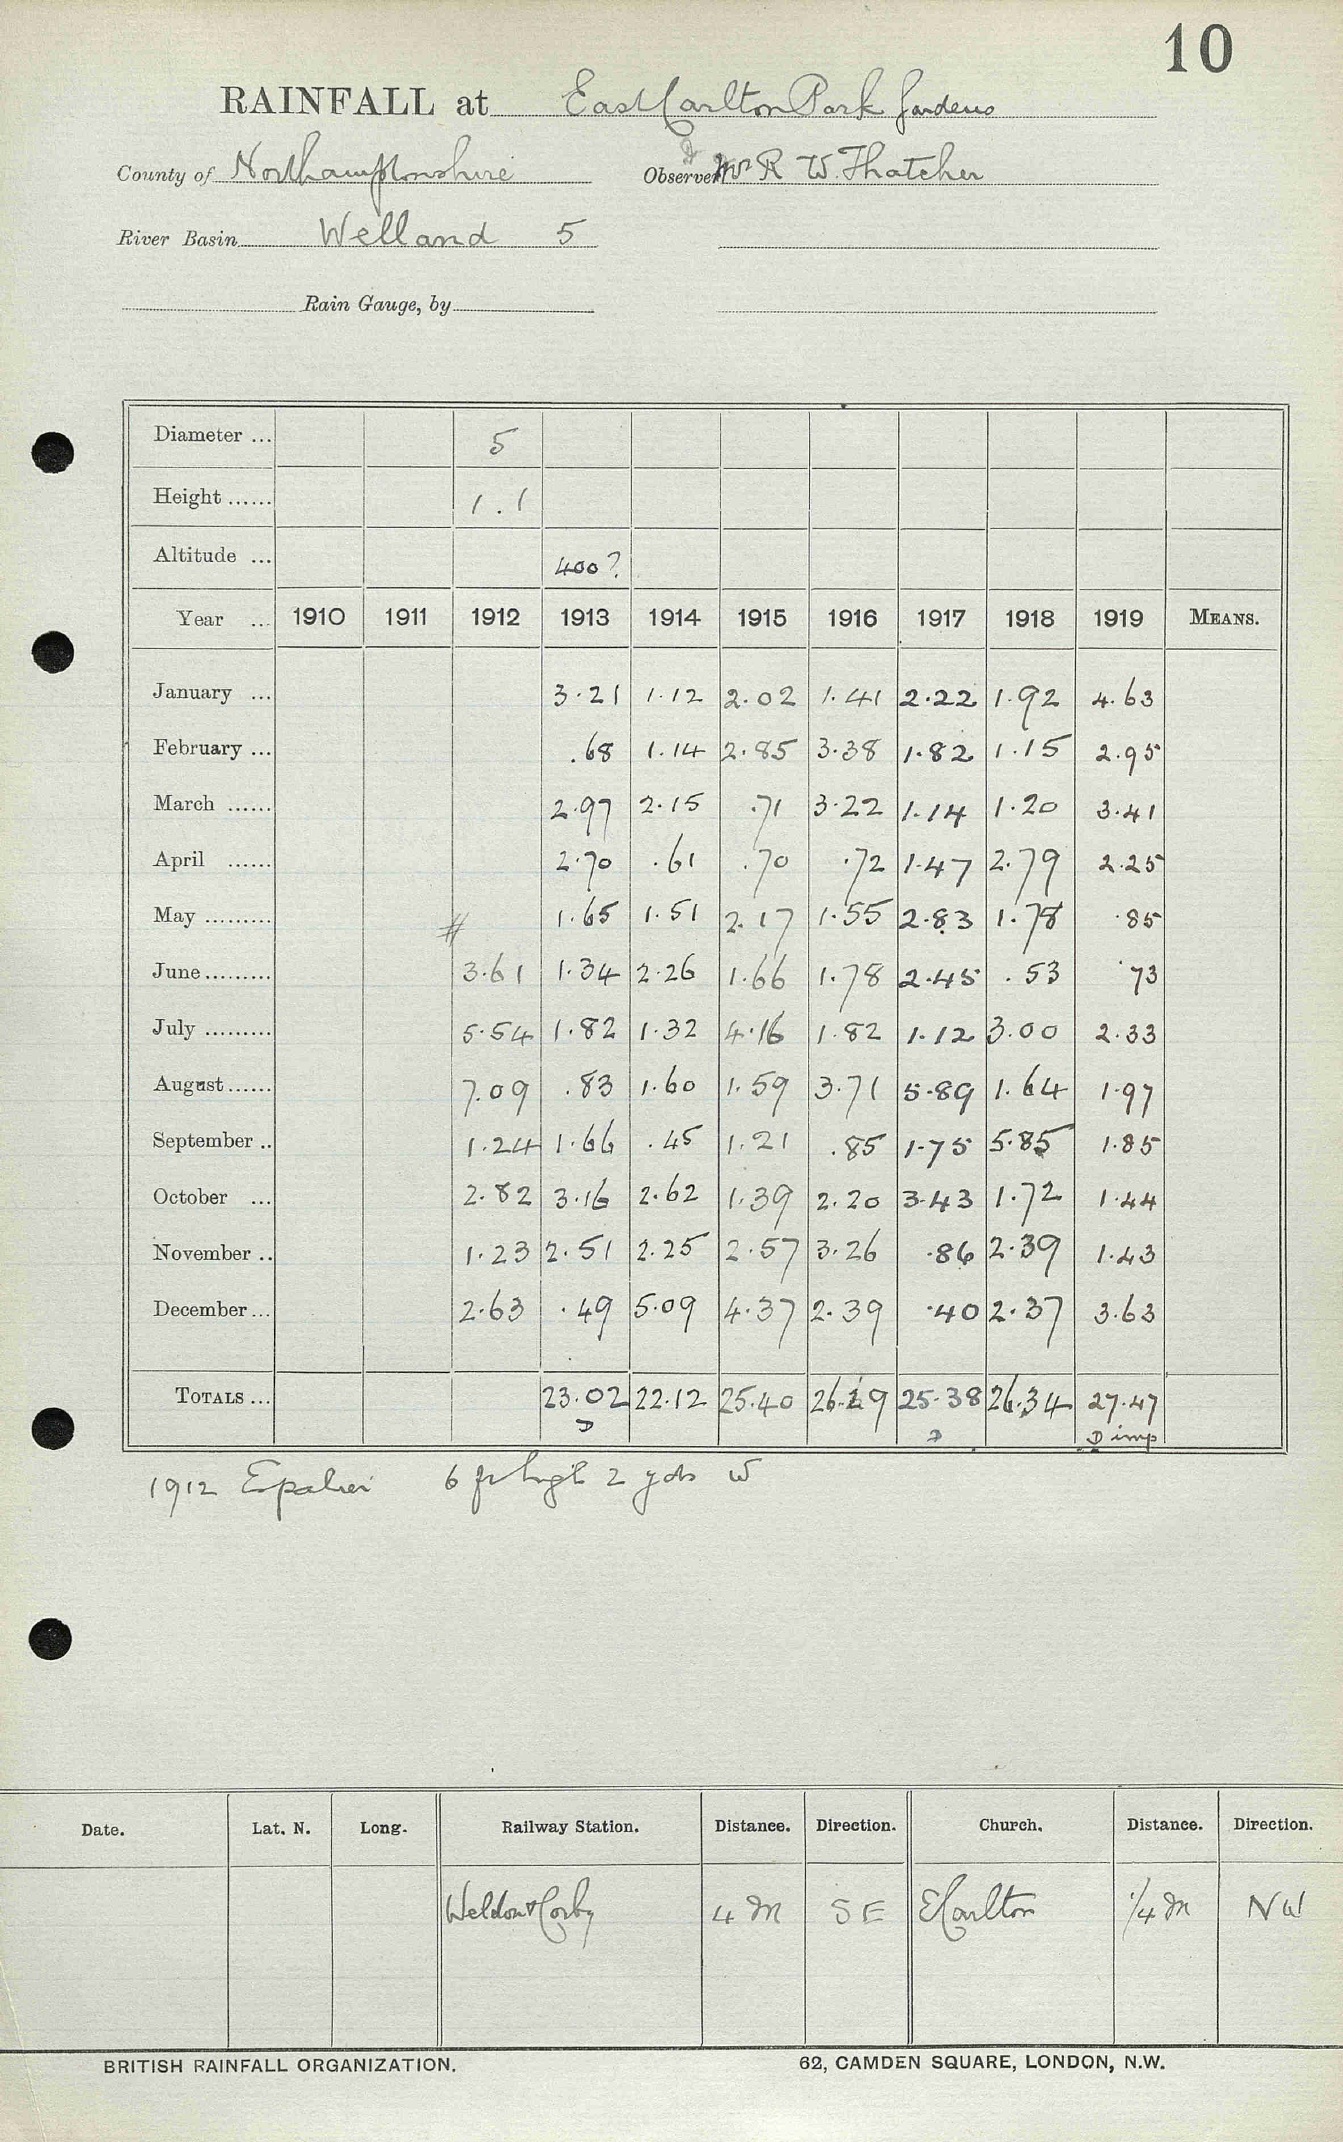 10
RAINFALL at East Carlton Park Gardens
County of Northamptonshire Observer Mr R W. Thatcher
River Basin Welland 5
Rain Gauge, by
Diameter ... 5
Height ...... 1.1
Altitude ... 400?
Year ... 1910 1911 1912 1913 1914 1915 1916 1917 1918 1919 MEANS.
January ... 3.21 1.12 2.02 1.41 2.22 1.92 4.63
February ... .68 1.14 2.85 3.38 1.82 1.15 2.95
March ...... 2.97 2.15 .71 3.22 1.14 1.20 3.41
April ...... 2.70 .61 .70 .72 1.47 2.79 2.25
May ......... # 1.65 1.51 2.17 1.55 2.83 1.78 .85
June ......... 3.61 1.34 2.26 1.66 1.78 2.45 .53 .73
July ......... 5.54 1.82 1.32 4.16 1.82 1.12 3.00 2.33
August ...... 7.09 .83 1.60 1.59 3.71 5.89 1.64 1.97
September .. 1.24 1.66 .45 1.21 .85 1.75 5.85 1.85
October ... 2.82 3.16 2.62 1.39 2.20 3.43 1.72 1.44
November .. 1.23 2.51 2.25 2.57 3.26 .86 2.39 1.43
December ... 2.63 .49 5.09 4.37 2.39 .40 2.37 3.63
TOTALS ... 23.02 22.12 25.40 26.29 25.38 26.34 27.47
D D D imp
1912 Espalier 6 ft high 2 yds W
Date. Lat. N. Long. Railway Station. Distance. Direction. Church. Distance. Direction.
Weldon & Corby 4 M SE E Carlton 1/4 M NW
BRITISH RAINFALL ORGANIZATION. 62, CAMDEN SQUARE, LONDON, N.W.